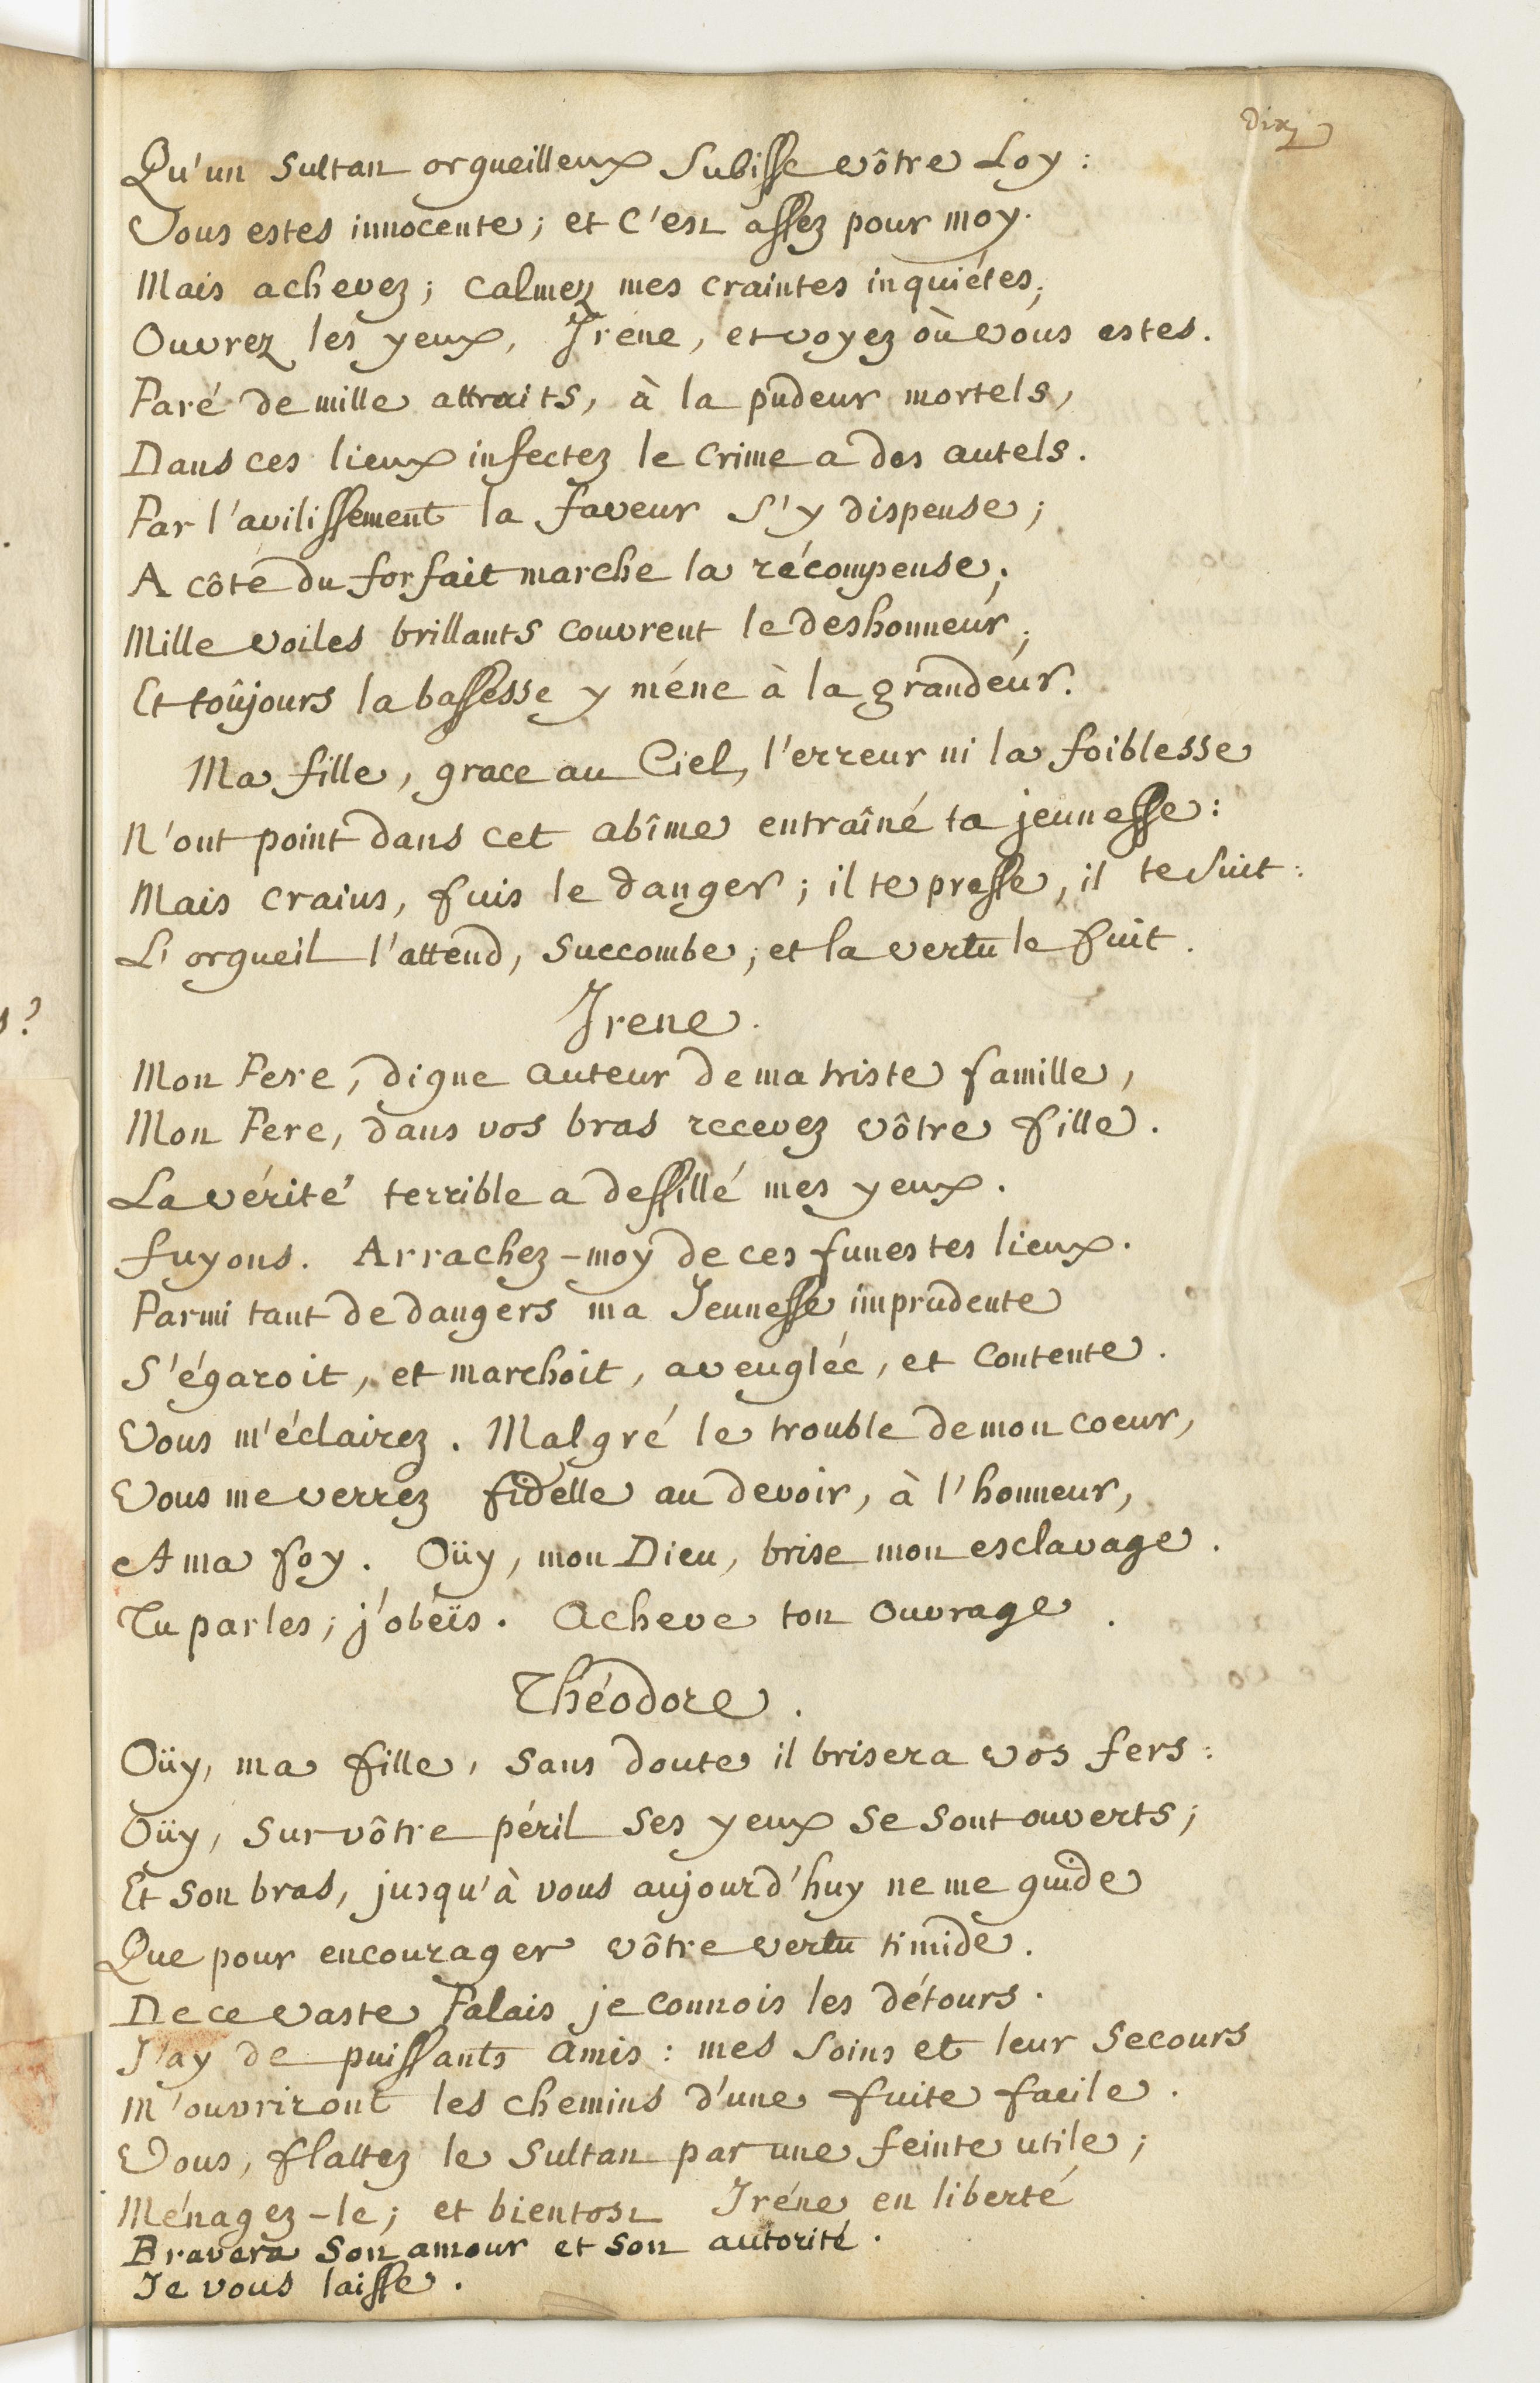 Dix
Qu'un Sultan orgueilleux Subisse vôtre Loy :
Vous estes innocente ; et c'est assez pour moy.
Mais achevez ; calmez mes craintes inquiétes ;
Ouvrez les yeux, Iréne, et voyez où vous estes.
Paré de mille attraits, à la pudeur mortels,
Dans ces lieux infectez le crime a des autels.
Par l'avilissement la faveur s'y dispense ;
A côté du forfait marche la récompense ;
Mille voiles brillants couvrent le deshonneur ;
Et toûjours la bassesse y méne à la grandeur.
Ma fille, grace au Ciel, l'erreur ni la foiblesse
N'ont point dans cet abîme entraîné ta jeunesse :
Mais crains, fuis le danger ; il te presse, il te suit :
L'orgueil l'attend, succombe ; et la vertu le fuit.
Irene.
Mon Pere, digne auteur de ma triste famille,
Mon Pere, dans vos bras recevez vôtre fille.
La vérité terrible a dessillé mes yeux.
fuyons. Arrachez-moy de ces funestes lieux.
Parmi tant de dangers ma Jeunesse imprudente
S'égaroit, et marchoit, aveuglée, et contente.
Vous m'éclairez. Malgré le trouble de mon coeur,
Vous me verrez fidelle au devoir, à l'honneur,
A ma foy. Oüy, mon Dieu, brise mon esclavage.
Tu parles ; j'obéïs. Acheve ton ouvrage.
Théodore.
Oüy, ma fille, sans doute il brisera vos fers :
Oüy, sur vôtre péril ses yeux se sont ouverts ;
Et son bras, jusqu'à vous aujourd'huy ne me guide
Que pour encourager vôtre vertu timide.
De ce vaste Palais je connois les détours.
J'ay de puissants amis : mes soins et leur secours
M'ouvriront les chemins d'une fuite facile.
Vous, flattez le Sultan par une feinte utile ;
Ménagez-le ; et bientost Iréne en liberté
Bravera son amour et son autorité.
Je vous laisse.
s ?